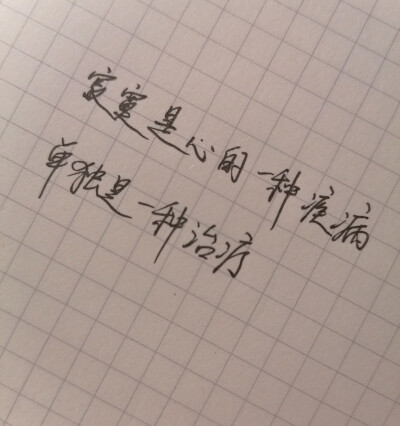 寂寞是心的一种疾病
单独是一种治疗